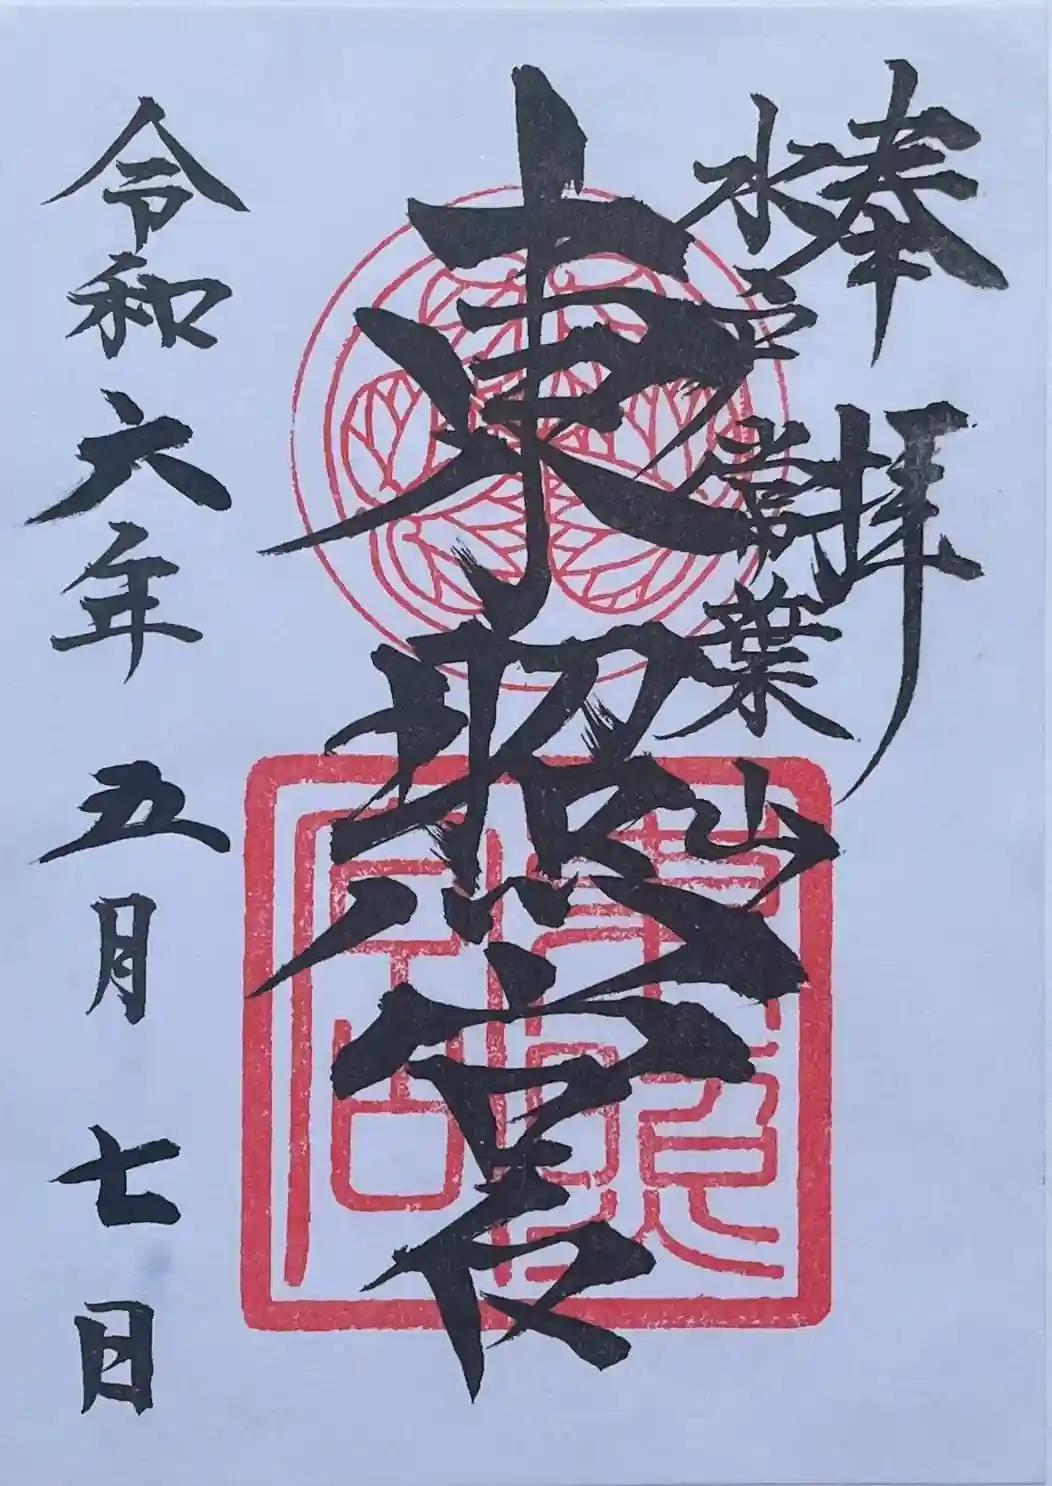 奉拝
水戸常葉山
東照宮
令和六年五月七日